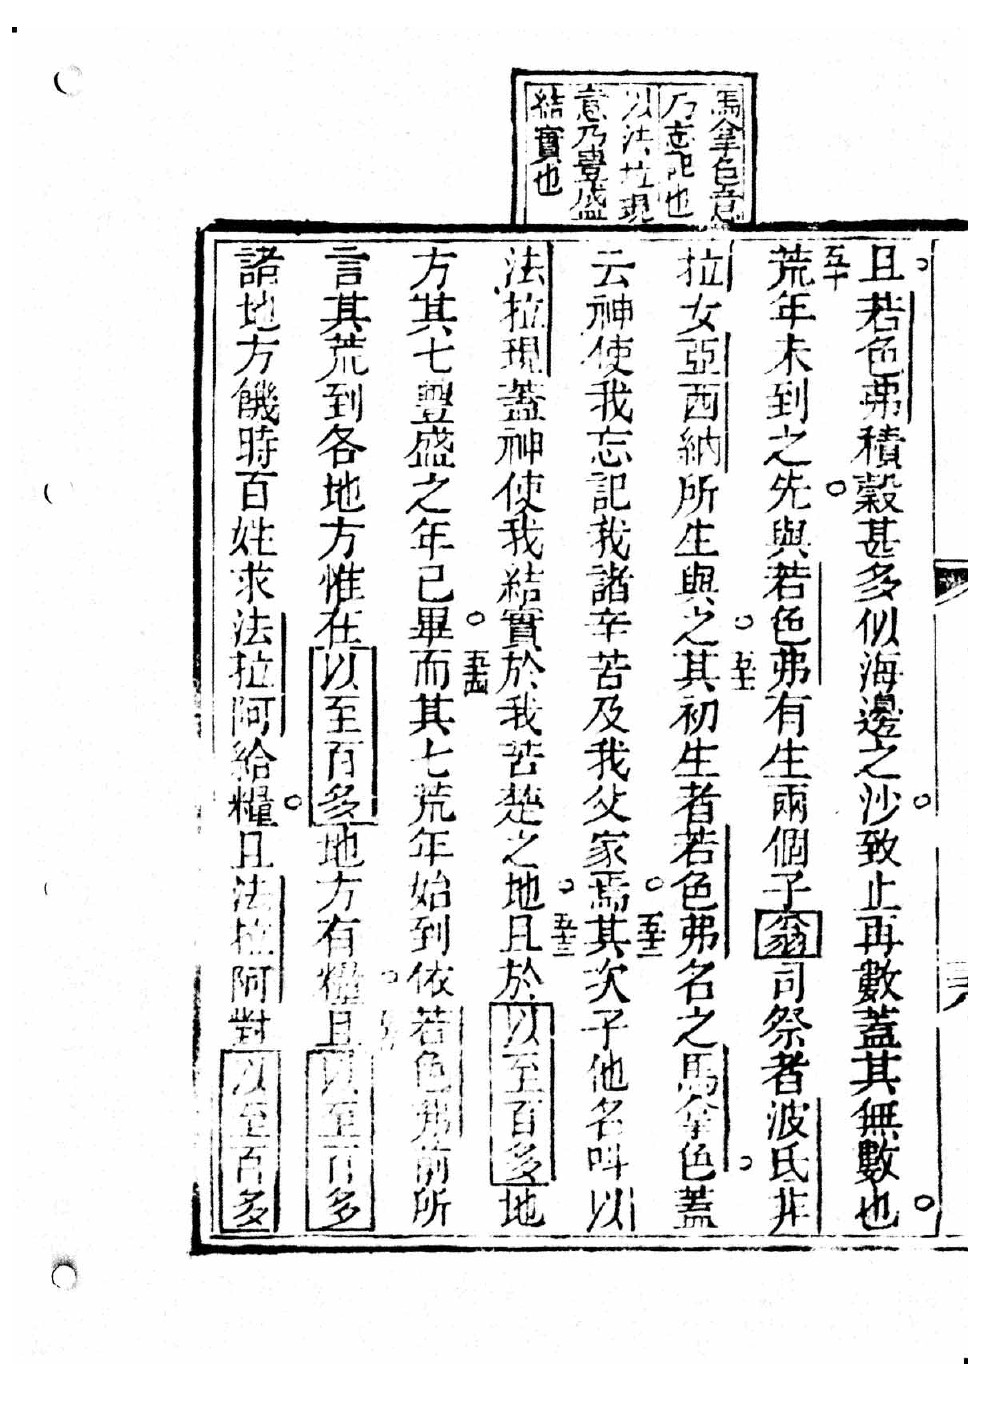 馬拿色意
乃忘記也
以法拉現
意乃豊盛
結實也
且若色弗積穀甚多似海邊之沙致止再數蓋其無數也
五十
荒年未到之先與若色弗有生兩個子翁司祭者波氏非
拉女亞西納所生與之其初生者若色弗名之馬拿色蓋
五十一
云神使我忘記我諸辛苦及我父家焉其次子他名叫以
五十二
法拉現蓋神使我結實於我苦楚之地且於以至百多地
五十三
方其七豐盛之年已畢而其七荒年始到依若色弗前所
五十四
言其荒到各地方惟在以至百多地方有糧且以至百多
諸地方饑時百姓求法拉阿給糧且法拉阿對以至百多